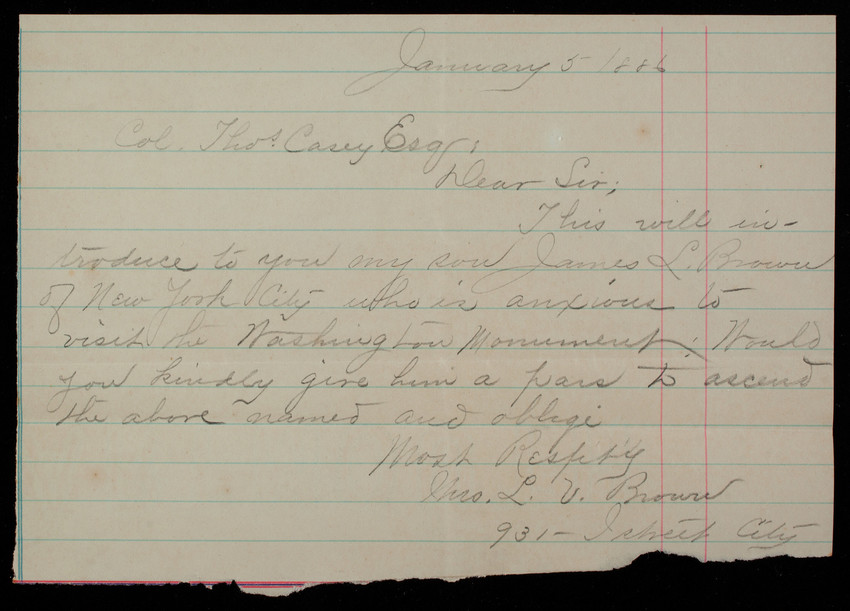 January 5 1886
Col. Thos. Casey Esq;
Dear Sir;
This will in-
troduce to you my son James L. Brown
of New York City who is anxious to
visit the Washington Monument. Would
you kindly give him a pass to ascend
the above named and oblige
Most Respct'y
Mrs. L. V. Brown
931- I street City